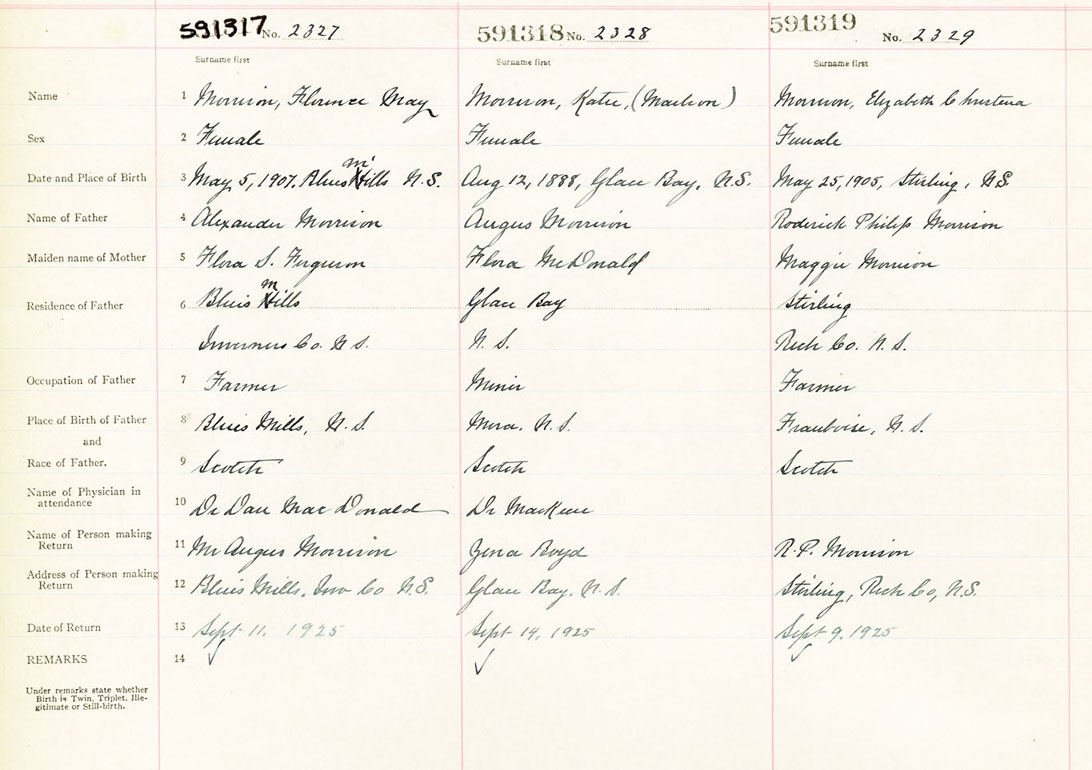 591317 No. 2327 591318 No. 2328 591319 No. 2329
Surname first Surname first Surname first
Name 1 Morrison, Florence May Morrison, Katie, ( ) Morrison, Elizabeth Christena
Sex 2 Female Female Female
M
Date and Place of Birth 3 May 5, 1907, Blues Hills N.S. Aug 12, 1888, Glace Bay, N.S. May 25, 1905, Stirling, N.S.
Name of Father 4 Alexander Morrison Angus Morrison Roderick Philip Morrison
Maiden name of Mother 5 Flora S. Ferguson Flora McDonald Maggie Morrison
M
Residence of Father 6 Blues Hills Glace Bay Stirling
Inverness Co. N.S. N.S. Rich Co. N.S.
Occupation of Father 7 Farmer Miner Farmer
Place of Birth of Father 8 Blues Mills, N.S. Mira. N.S. Framboise, N.S.
and
Race of Father. 9 Scotch Scotch Scotch
Name of Physician in
attendance 10 Dr Dan MacDonald Dr
Name of Person making
Return 11 Mr Angus Morrison Boyd R.P. Morrison
Address of Person making
Return 12 Blues Mills, Inv Co N.S. Glace Bay, N.S. Stirling, Rich Co, N.S.
Date of Return 13 Sept 11, 1925 Sept 14, 1925 Sept 9, 1925
REMARKS 14 ✓ ✓ ✓
Under remarks state whether
Birth is Twin, Triplet, Ille-
gitimate or Still-birth.